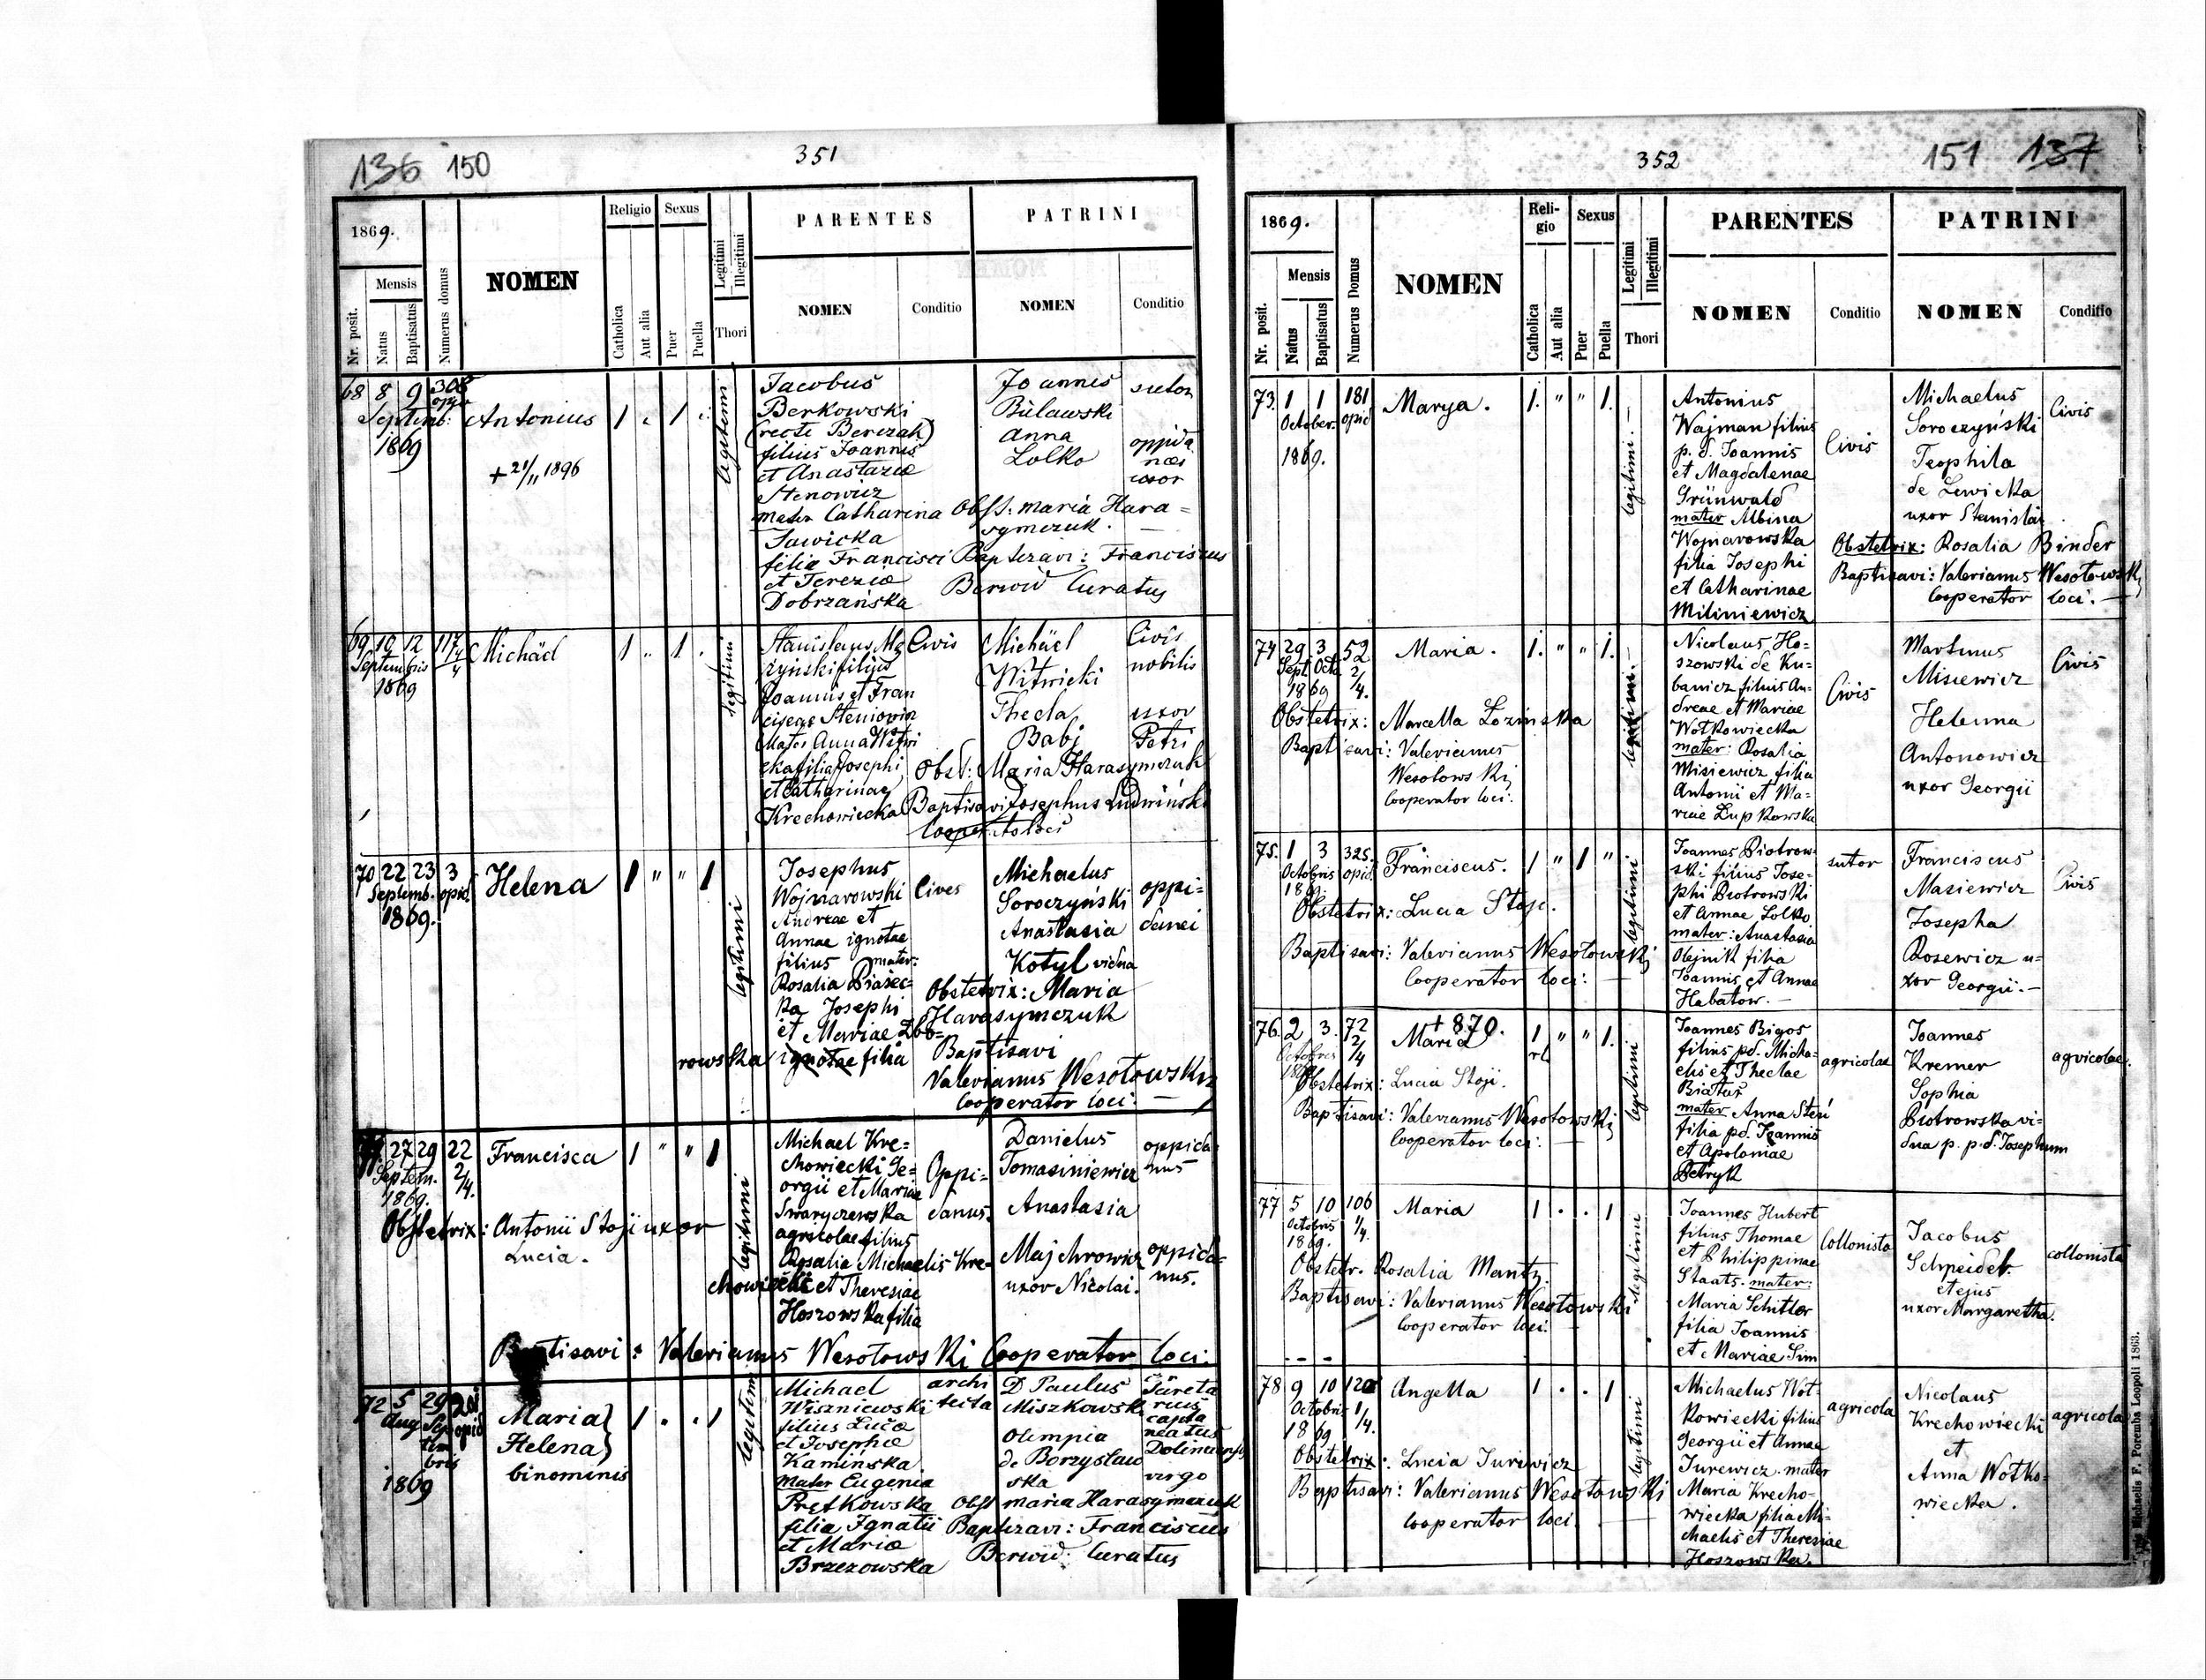 136 150
351
1869.
Mensis
Nr. posit.
Natus
Baptisatus
Numerus domus
NOMEN
Religio
Catholica
Aut alia
Sexus
Puer
Puella
Legitimi
Illegitimi
Thori
PARENTES
NOMEN
Conditio
PATRINI
NOMEN
Conditio
68 8 9 308
Septemb:
1869
Antonius 1 1
+ 21/11 1896
legitimi
Jacobus
Berkowski
(recte Berezah)
filius Joannis
et Anastaziæ
Stenowicz
mater Catharina
Sawicka
filia Francisci
et Tereziæ
Dobrzańska
Joannes
Bulawski
Anna
Lolko
sutor
oppida
næi
uxor
Obst: maria Hara=
symczuk.
Baptizavi: Franciscus
Berwid Curatus
69 10 12 117
Septembris
1869
Michäel 1 1
legitimi
Stanislaus Ma
zyński filius
Joannis et Fran
ciscae Steniowicz
Mater Anna Witwi
cka filia Josephi
et Catharinae
Krechowiecka
Civis
Michäel
Witwicki
Thecla
Babj
Civis
nobilis
uxor
Petri
Obst: Maria Harasymczuk
Baptisavi Josephus Ludwiński
70 22 23 3
Septemb. opid.
1869.
Helena 1 " " 1
legitimi
Josephus
Wojnarowski
Andreae et
Annae ignotae
filius mater:
Rosalia Piasec=
ka Josephi
et Mariae Zbo=
rowska ignotae filia
Cives
Michaelus
Soroczyński
Anastasia
Kotyl vidua
oppi=
danei
Obstetrix: Maria
Harasymczuk
Baptisavi
Valerianus Wesołowski
Cooperator loci. —
27 29 22
Septem. 2/4.
1869.
Francisca 1 " " 1
Obstetrix: Antonii Stoji uxor
Lucia.
legitimi
Michael Kre=
chowiecki Ge=
orgii et Mariae
Swaryczewska
agricolae filius
Rosalia Michaelis Kre=
chowiecki et Theresiae
Hoszowska filia
Oppi=
danus.
Danielus
Tomasiniewicz
Anastasia
Majchrowicz
uxor Nicolai.
oppida
nus
oppida=
nus.
Baptisavi: Valerianus Wesołowski Cooperator loci:
72 5 29
Aug Sep opid
tem
bris
1869
Maria }
Helena }
binominis
1 1
legitimi
Michael
Wiszniewski
filius Lucæ
et Josephæ
Kamińska
Mater Eugenia
Prętkowska
filia Ignatii
et Mariæ
Brzezowska
archi
tecta
D Paulus
Miszkowski
Olimpia
de Borzysław
ska
virgo
Obst maria Harasymczuk
Baptizavi: Franciscus
Berwid: Curatus
352
151 137
1869.
Mensis
Nr. posit.
Natus
Baptisatus
Numerus Domus
NOMEN
Reli-
gio
Catholica
Aut alia
Sexus
Puer
Puella
Legitimi
Illegitimi
Thori
PARENTES
NOMEN
Conditio
PATRINI
NOMEN
Conditio
73. 1 1 181
October. opid
1869.
Marya. 1. " " 1.
legitimi.
Antonius
Wajman filius
p. d. Joannis
et Magdalenae
Grünwald
mater Albina
Wojnarowska
filia Josephi
et Catharinae
Miliniewicz
Civis
Michaelus
Soroczyński
Teophila
de Lewicka
uxor Stanislai
Civis
Obstetrix: Rosalia Binder
Baptisavi: Valerianus Wesołowski
Cooperator loci. —
74 29. 3 52
Sept. Octo. 2/4.
1869
Maria. 1. " " 1.
Obstetrix: Marcella Lozinska
Baptisavi: Valerianus
Wesołowski
Cooperator loci:
legitimi.
Nicolaus Ho=
szowski de Ku=
banicz filius An=
dreae et Mariae
Wołkowiecka
mater: Rosalia
Misiewicz filia
Antonii et Ma=
riae Lupkowska
Civis
Martinus
Misiewicz
Helenna
Antonowicz
uxor Georgii
Civis
75. 1 3 325.
Octobris opid
Franciscus. 1 " 1 "
Obstetrix: Lucia Stoji.
Baptisavi: Valerianus Wesołowski
Cooperator loci: —
legitimi
Joannes Piotrow=
ski filius Jose=
phi Piotrowski
et Annae Lolko
mater: Anastasia
Olejnik filia
Joannis et Annae
Habatow. —
sutor
Franciscus
Masiewicz
Josepha
Rosewicz u=
xor Georgii. —
Civis
76. 2 3. 72
Octobris 2/4
+ 870.
Maria 1 " " 1.
Obstetrix: Lucia Stoji.
Baptisavi: Valerianus Wesołowski
Cooperator loci: —
legitimi
Joannes Bigos
filius pd. Micha=
elis et Theclae
Białus
mater Anna Steń
filia pd. Joannis
et Apoloniae
Petryk
agricolae
Joannes
Kremer
Sophia
Piotrowska vi=
dua p. p.d. Josephum
agricolae.
77 5 10 106
Octobris 1/4.
1869.
Maria 1 . . 1
Obstetr. Rosalia Mantz.
Baptisavi: Valerianus Wesołowski
Cooperator loci.
legitimi
Joannes Hubert
filius Thomae
et Philippinae
Staats. mater:
Maria Schitler
filia Joannis
et Mariae Sim
Collonista
Jacobus
Schneider
et ejus
uxor Margaretha.
collonista
78 9 10 120
Octobris 1/4.
1869
Angella 1 . . 1
Obstetrix: Lucia Jurewicz
Baptisavi: Valerianus Wesołowski
Cooperator loci. —
legitimi
Michaelus Woł-
kowiecki filius
Georgii et Annae
Jurewicz. mater
Maria Krecho-
wiecka filia Mi-
chaelis et Theresiae
Hoszowska.
agricola
Nicolaus
Krechowiecki
et
Anna Wołko=
wiecka.
agricola
Michaelis F. Poremba Leopoli 1863.